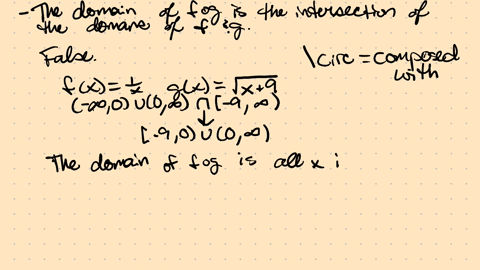 - The domain of fog is the intersection of
the domane of f & g.
False.
\circ = composed
with
f(x) = 1/x g(x) = √x+9
(-∞,0) ∪ (0,∞) ∩ [-9, ∞)
↓
[-9,0) ∪ (0,∞)
The domain of fog is all x i